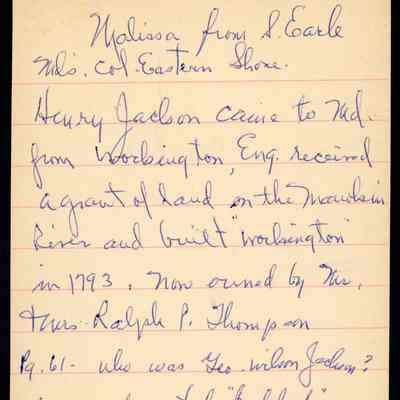 Malissa from S. Earle
Md's. Col. Eastern Shore.
Henry Jackson came to Md.
from Workington, Eng. received
a grant of land on the Manokin
River and built "Workington"
in 1793. Now owned by Mr.
& Mrs. Ralph P. Thompson
Pg. 61 - who was Geo. Wilson Jackson?